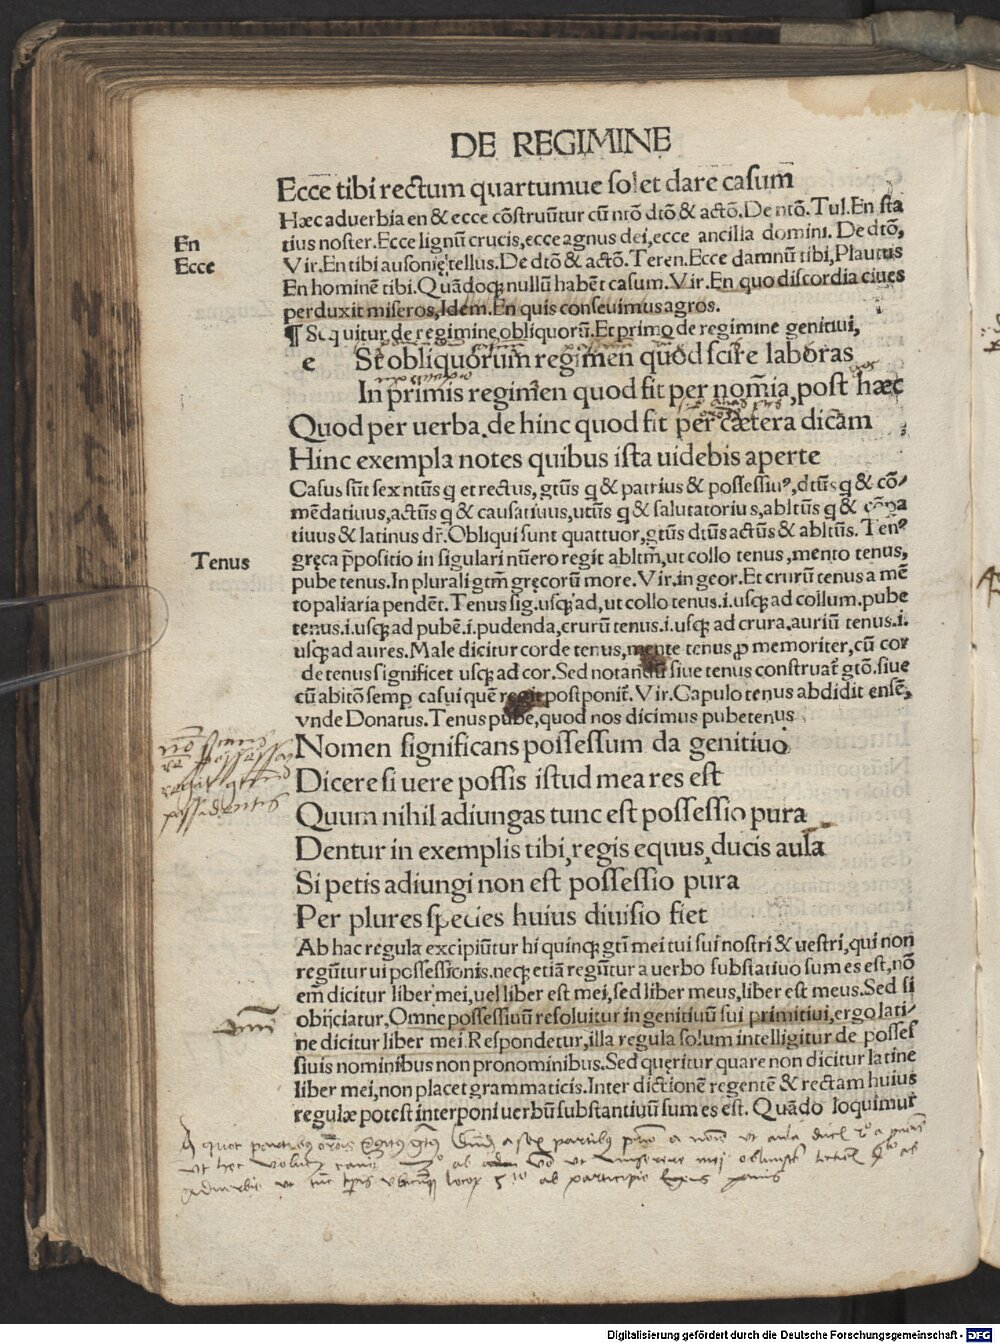 DE REGIMINE
Ecce tibi rectum quartumue solet dare casum̄
Hæc aduerbia en & ecce cõstruũtur cũ ntõ dtõ & actõ. De ntõ. Tul. En sta
En
tius noster. Ecce lignũ crucis, ecce agnus dei, ecce ancilla domini. De dtõ,
Ecce
Vir. En tibi ausonię tellus. De dtõ & actõ. Teren. Ecce damnũ tibi, Plautus
En hominẽ tibi. Quãdoqꝫ nullũ habẽt casum. Vir. En quo discordia ciues
perduxit miseros, Idem. En quis conseuimus agros.
¶ Seq uitur de regimine obliquorũ. Et primo de regimine genitiui,
e St obliquorum regimen quod scire laboras
In primis regimen quod fit per nom̃ia, post hæc
Quod per uerba. de hinc quod fit per cætera dicam
Hinc exempla notes quibus ista uidebis aperte
Casus sũt sex ntũs q et rectus, gtũs q & patrius & possessiuꝰ, dtũs q & cõ-
mẽdatiuus, actũs q & causatiuus, utũs q & salutatorius, abltũs q & cõpa
tiuus & latinus dr̃. Obliqui sunt quattuor, gtũs dtũs actũs & abltũs. Tenꝰ
Tenus
gręca p̃positio in sigulari nũero regit abltm̃, ut collo tenus, mento tenus,
pube tenus. In plurali gtm̃ gręcorũ more. Vir. in geor. Et crurũ tenus a mẽ
to paliaria pendẽt. Tenus sig. usqꝫ ad, ut collo tenus .i. usqꝫ ad collum. pube
tenus .i. usqꝫ ad pubẽ .i. pudenda, crurũ tenus .i. usqꝫ ad crura. auriũ tenus .i.
usqꝫ ad aures. Male dicitur corde tenus, mente tenus, ꝓ memoriter, cũ cor
de tenus significet usqꝫ ad cor. Sed notandũ siue tenus construat̃ gtõ. siue
cũ abltõ semp casui quẽ regit postponit̃. Vir. Capulo tenus abdidit ensẽ,
vnde Donatus. Tenus pube, quod nos dicimus pubetenus
Nomen significans possessum da genitiuo
Dicere si uere possis istud mea res est
possidentis
Quum nihil adiungas tunc est possessio pura
Dentur in exemplis tibi, regis equus, ducis aula
Si petis adiungi non est possessio pura
Per plures species huius diuisio fiet
Ab hac regula excipiũtur hi quinqꝫ gtĩ mei tui sui nostri & uestri, qui non
regũtur ui possessionis. neqꝫ etiã regũtur a uerbo substatiuo sum es est, nõ
em̃ dicitur liber mei, uel liber est mei, sed liber meus, liber est meus. Sed si
obijciatur, Omne possessiuũ resoluitur in genitiuũ sui primitiui, ergo lati-
ne dicitur liber mei. Respondetur, illa regula solum intelligitur de posses
siuis nominibus non pronominibus. Sed quęritur quare non dicitur latine
liber mei, non placet grammaticis. Inter dictionẽ regentẽ & rectam huius
regulæ potest interponi uerbũ substantiuũ sum es est. Quãdo loquimur
Digitalisierung gefördert durch die Deutsche Forschungsgemeinschaft - DFG